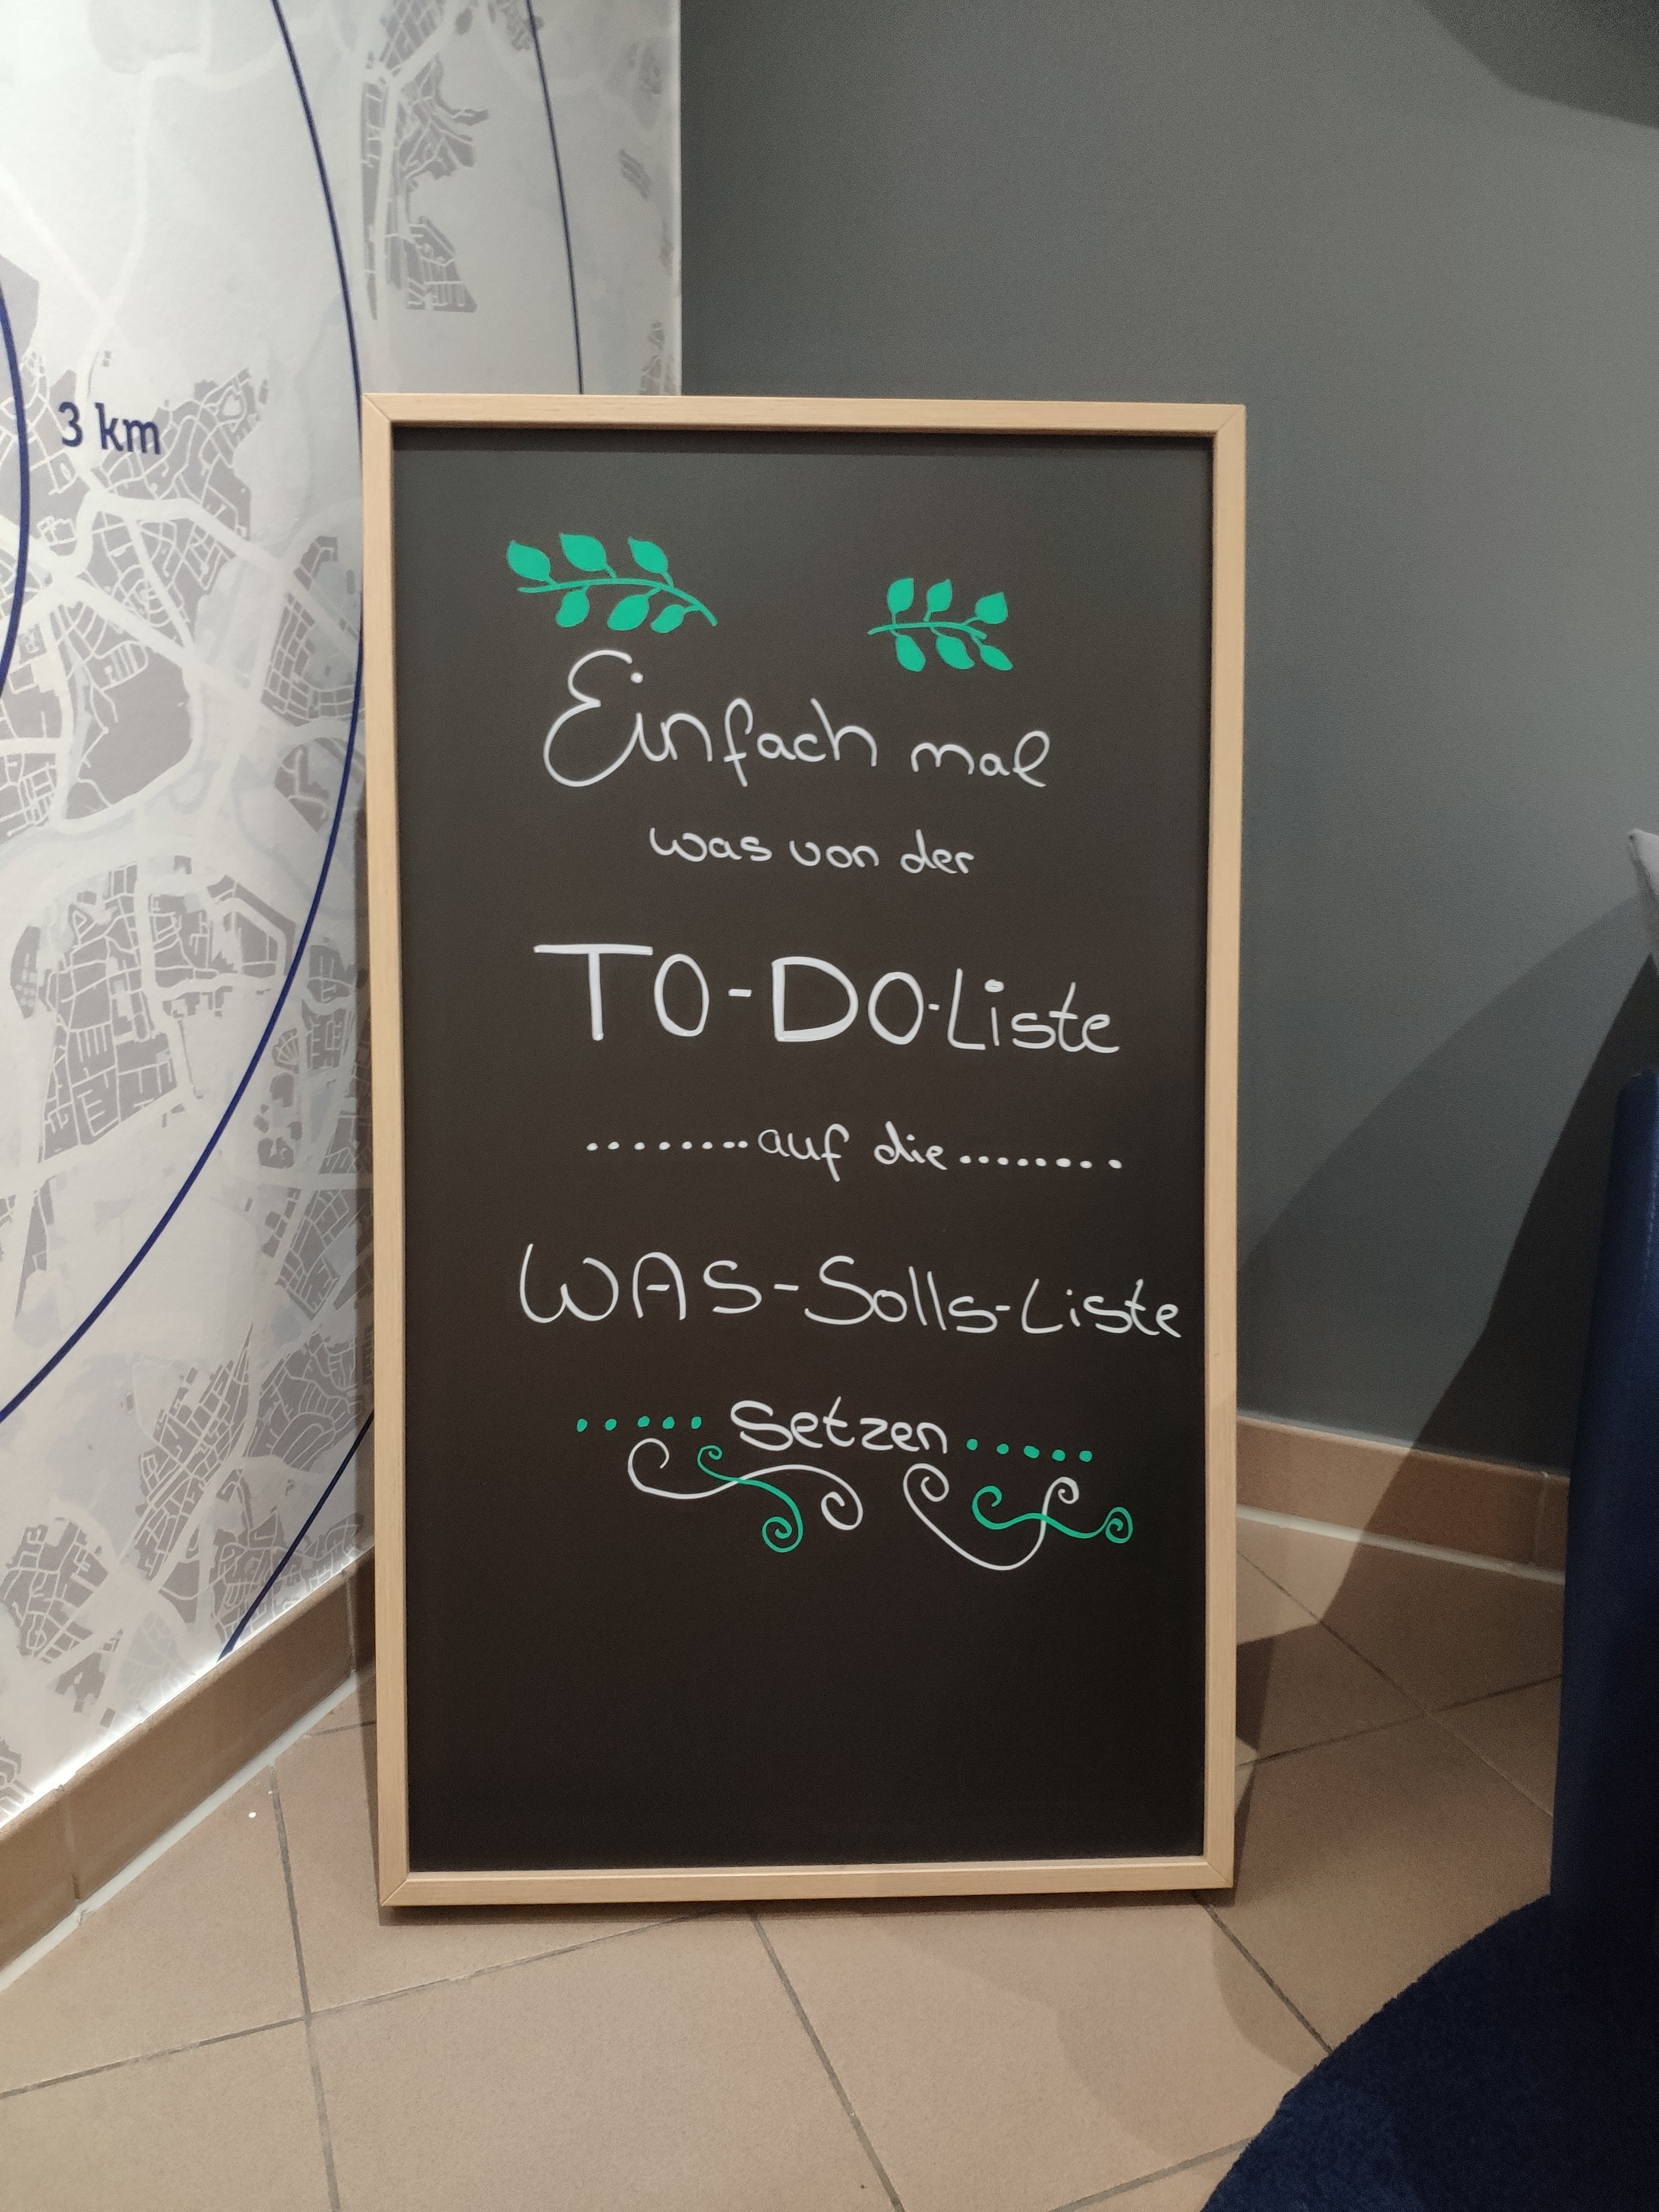 3 km
Einfach mal
was von der
TO-DO-Liste
........auf die........
WAS-Solls-Liste
..... setzen .....